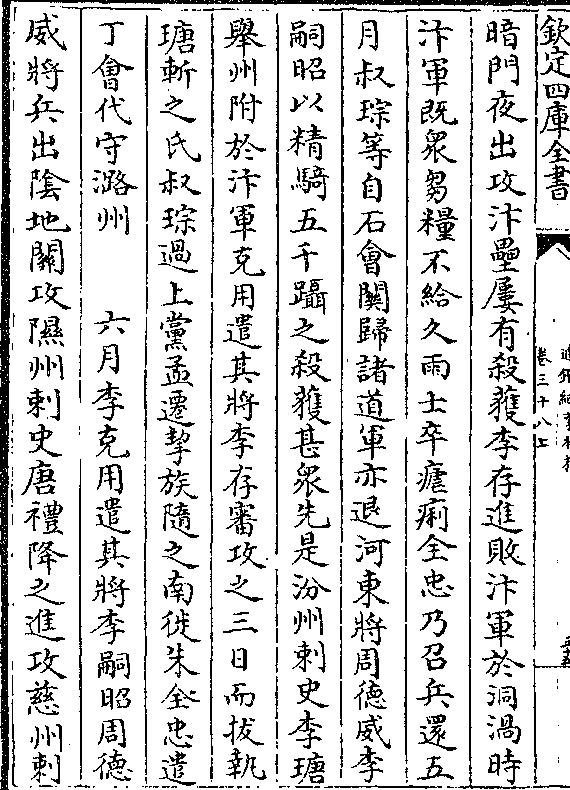 欽定四庫全書
卷三十八上
暗門夜出攻汴壘屢有殺獲李存進敗汴軍於洞渦時
汴軍既衆芻糧不給久雨士卒瘧痢全忠乃召兵還五
月叔琮等自石會關歸諸道軍亦退河東將周德威李
嗣昭以精騎五千躡之殺獲甚衆先是汾州刺史李瑭
舉州附於汴軍克用遣其將李存審攻之三日而拔執
瑭斬之氏叔琮過上黨孟遷挈族隨之南徙朱全忠遣
丁會代守潞州　　六月李克用遣其將李嗣昭周德
威將兵出陰地關攻隰州刺史唐禮降之進攻慈州刺